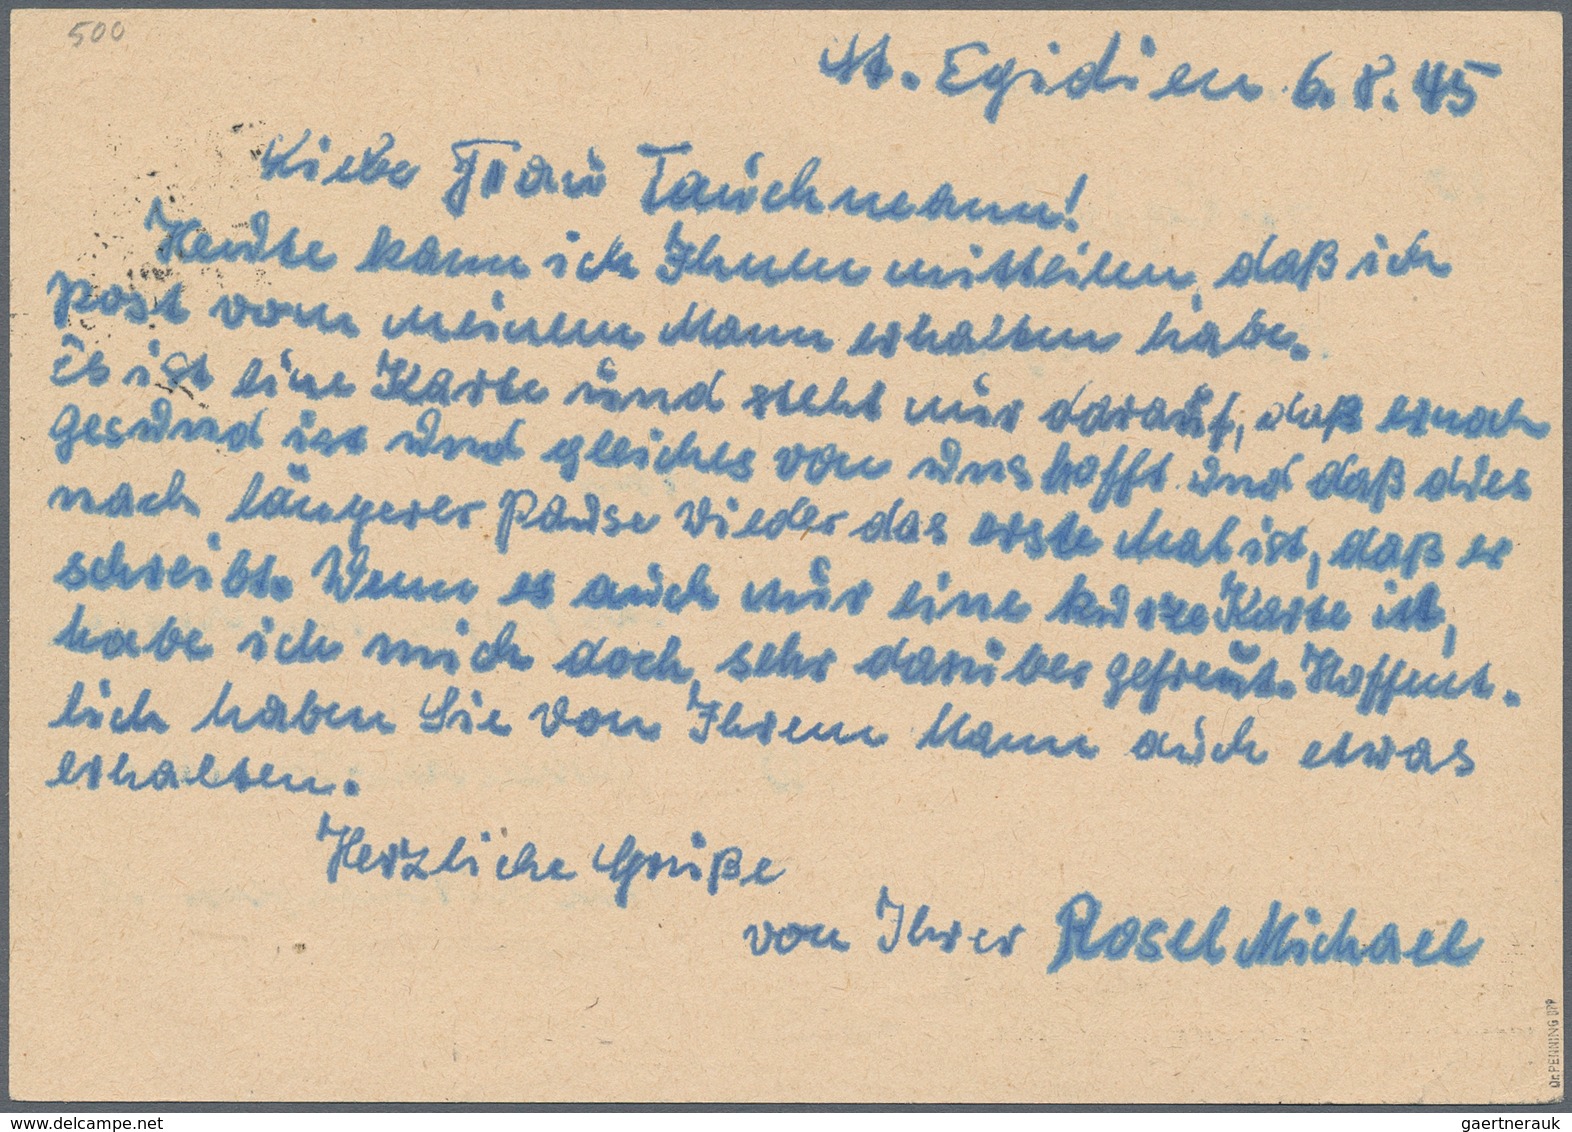 500
St. Egidien 6.8.45
Liebe Frau Tauchmann!
Heute kann ich Ihnen mitteilen, daß ich
Post von meinem Mann erhalten habe.
Es ist eine Karte und steht nur darauf, daß er noch
gesund ist und gleiches von uns hofft und daß dies
nach längerer Pause wieder das erste Mal ist, daß er
schreibt. Wenn es auch nur eine kurze Karte ist,
habe ich mich doch sehr darüber gefreut. Hoffent-
lich haben Sie von Ihrem Mann auch etwas
erhalten.
Herzliche Grüße
von Ihrer Rosel Michael
Dr. PENNING BPP
www.delcampe.net
gaertnerauk